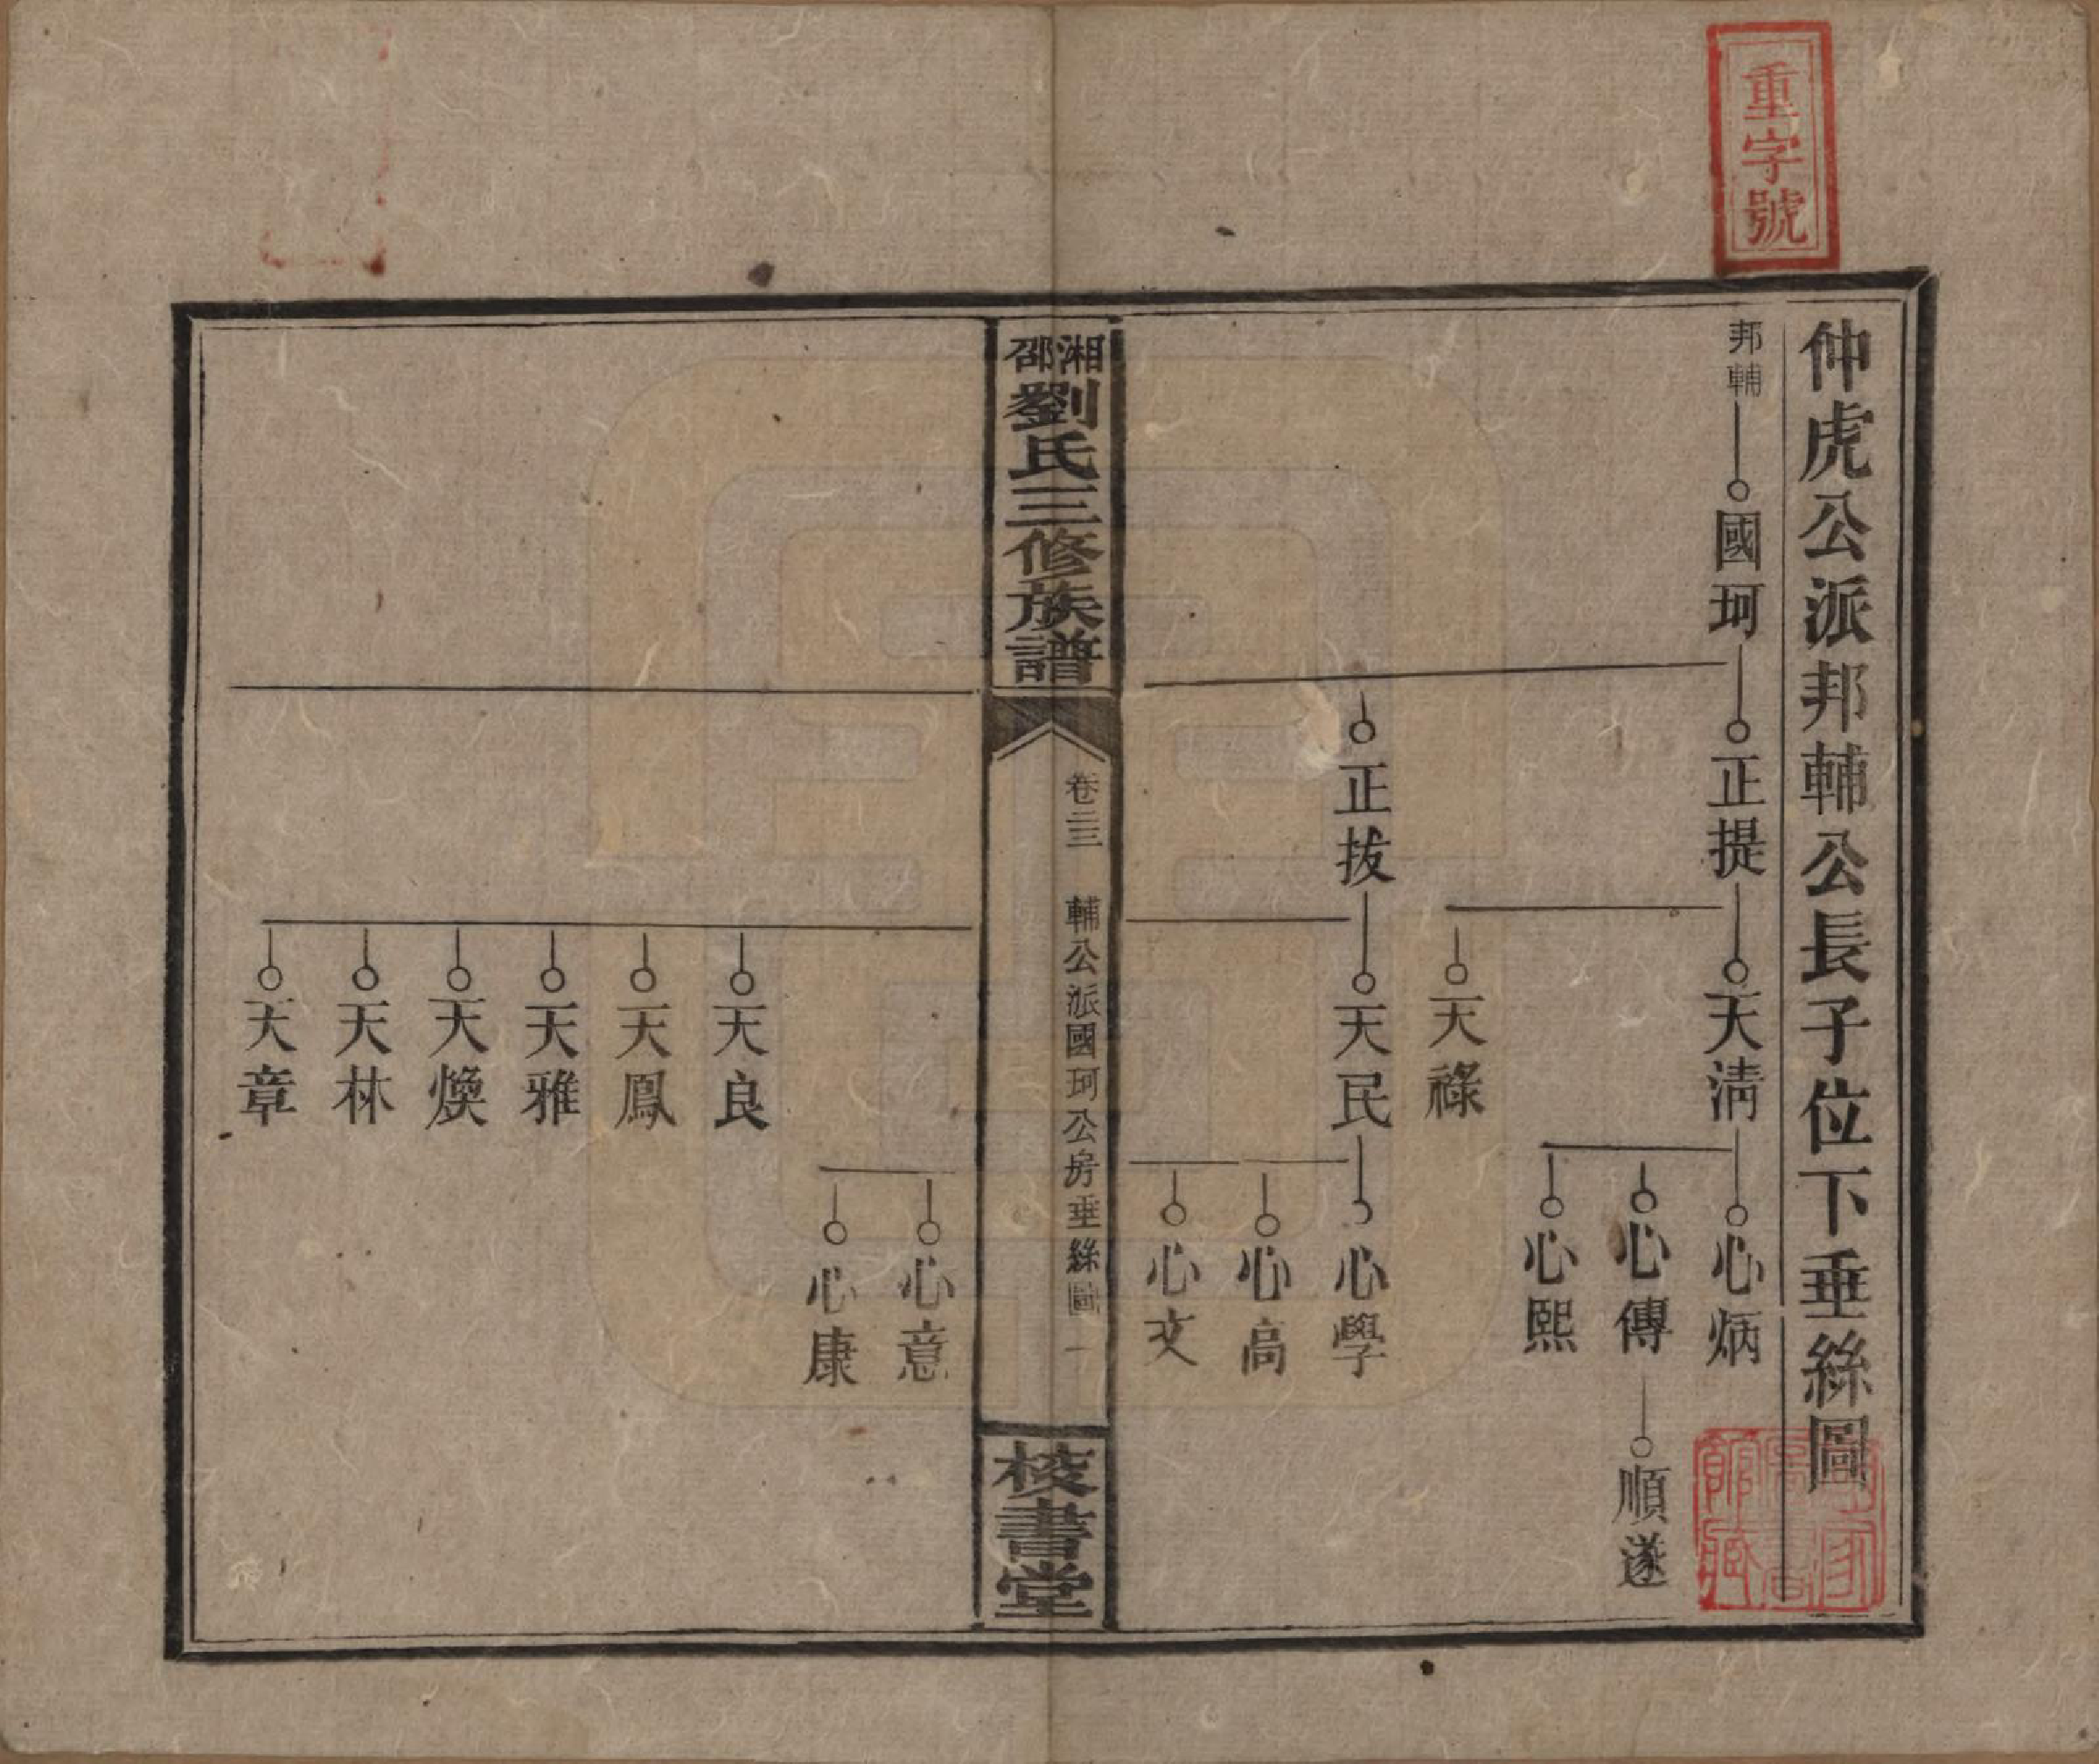 重字號
仲虎公派邦輔公長子位下垂絲圖
邦輔
國珂
正提
天清
心炳
心傳
順遂
心熙
天祿
正拔
天民
心學
心高
心文
湘邵劉氏三修族譜
卷二三
輔公派國珂公房垂絲圖
一
校書堂
心意
心康
天良
天鳳
天雅
天煥
天林
天章